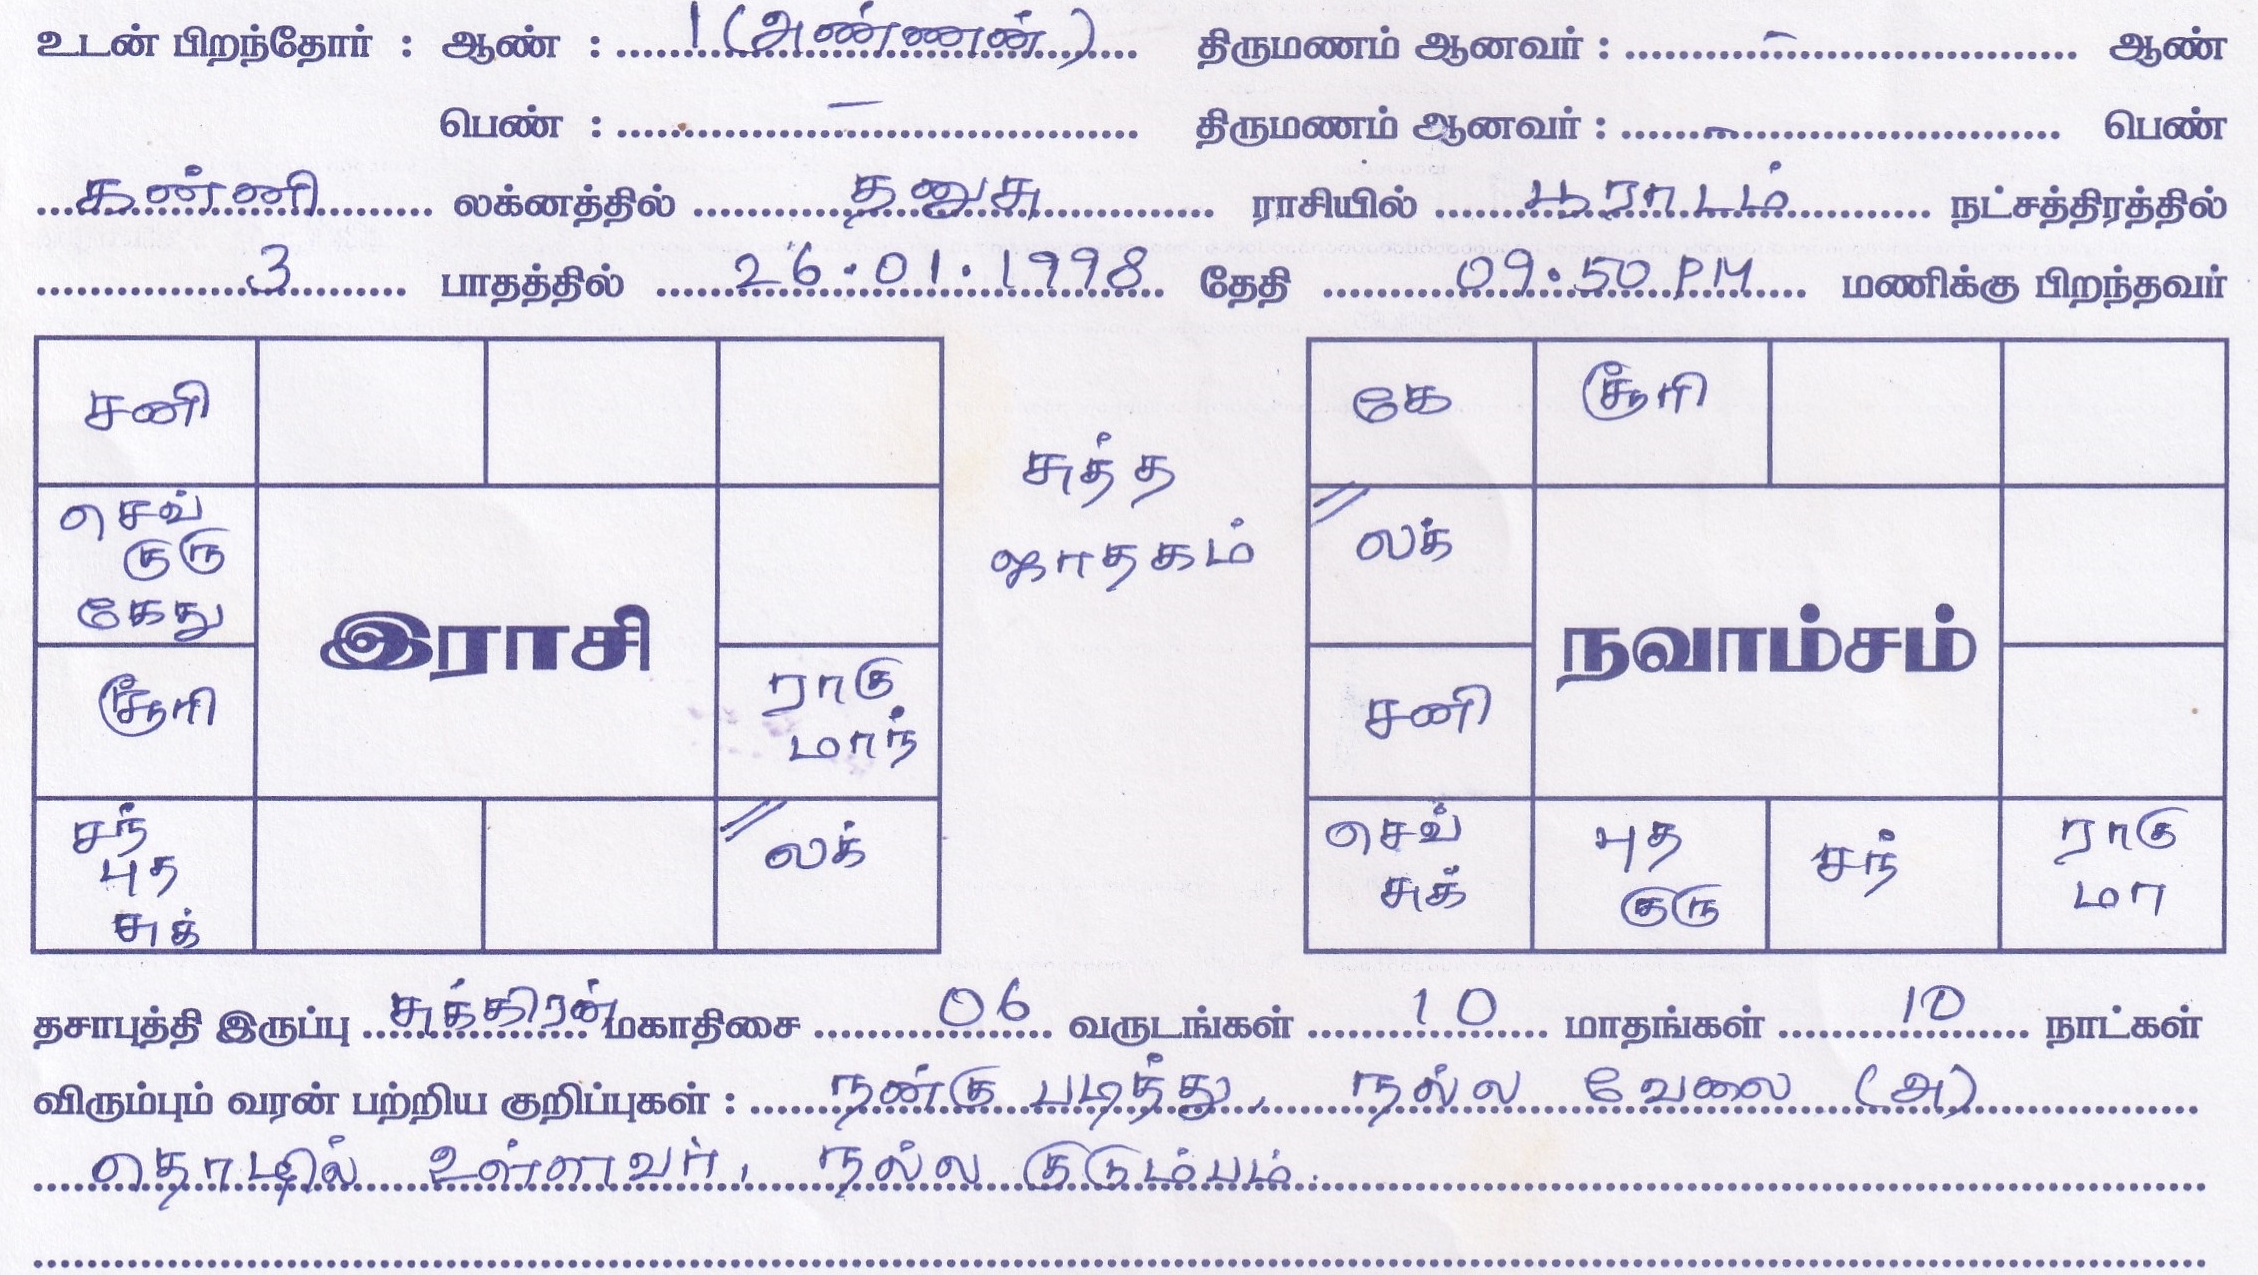 உடன் பிறந்தோர் : ஆண் : 1 (அண்ணன்) திருமணம் ஆனவர் : – ஆண்
பெண் : – திருமணம் ஆனவர் : – பெண்
கன்னி லக்னத்தில் தனுசு ராசியில் பூராடம் நட்சத்திரத்தில்
3 பாதத்தில் 26.01.1998 தேதி 09.50 PM மணிக்கு பிறந்தவர்
சனி
செவ்
குரு
கேது
சூரி
சந்
புத
சுக்
இராசி
ராகு
மாந்
லக்
சுத்த
ஜாதகம்
கே சூரி
லக்
சனி
செவ்
சுக்
நவாம்சம்
புத
குரு
சந்
ராகு
மா
தசாபுத்தி இருப்பு சுக்கிரன் மகாதிசை 06 வருடங்கள் 10 மாதங்கள் 10 நாட்கள்
விரும்பும் வரன் பற்றிய குறிப்புகள் : நன்கு படித்து, நல்ல வேலை (அ)
தொழில் உள்ளவர், நல்ல குடும்பம்.